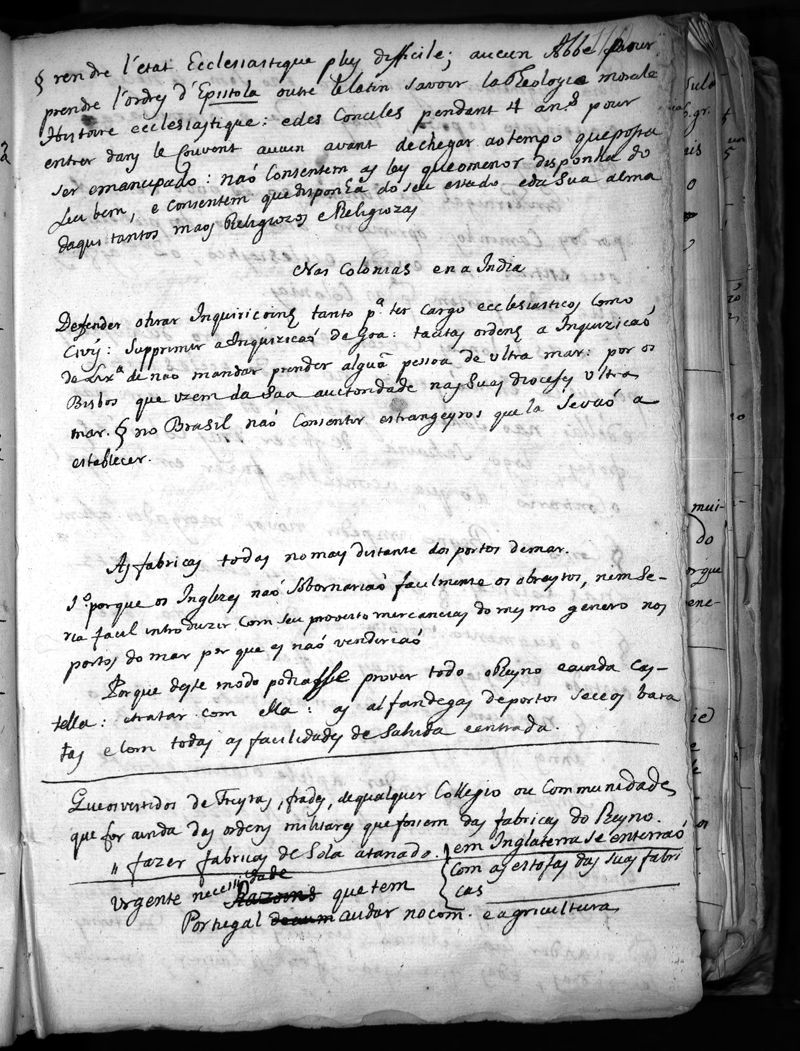 § rendre l'etat Ecclesiastique plus difficile; aucun Abbé pour
prendre l'ordres d'Epistola outre le latin savoir la Theologie morale
Histoire ecclesiastique: e des Conciles pendant 4 an.s pour
entrer dans le Couvent aucun avant de chegar ao tempo que possa
ser emancipado: naõ Consentem as leys que o menor disponha do
seu bem, e consentem que disponha do seu estado e da Sua alma
daqui tantos maos Religiozos e Religiozas
Nas Colonias e na India
Defender obrar Inquiricoins tanto p.a ter Cargo ecclesiasticos Como
Civis: Supprimir a Inquizicaõ de Goa: tacitas ordens a Inquizicaõ
de Lix.a de naõ mandar prender alguã pessoa de ultra mar: por os
Bisbos que uzem da Sua auctoridade nas Suas dioceses ultra
mar. § no Brasil naõ Consentir estrangeyros que la Se vaõ a
establecer.
As fabricas todas no mays distante dos portos de mar.
1.o porque os Inglezes naõ Sobornariaõ facilmente os obreyros, nem Se-
ria facil introduzir Com seu proverto mercancias do mesmo genero nos
portos do mar por que as naõ venderiaõ
Porque deste modo podiasse prover todo o Reyno e ainda Cas-
tella: e tratar com ella: as alfandegas de portos Seccos bara
tas e Com todas as facilidades de Sahida e entrada.
Que os vestidos de Freyras, frades, de qualquer Collegio ou Communidade
que for ainda das ordens militares que fossem das fabricas do Reyno.
" fazer fabricas de Sola atanado. em Inglaterra Se enterraõ
Com as estofas das suas fabri
cas
Urgente necessidade que tem
Portugal audar no com. e agricultura